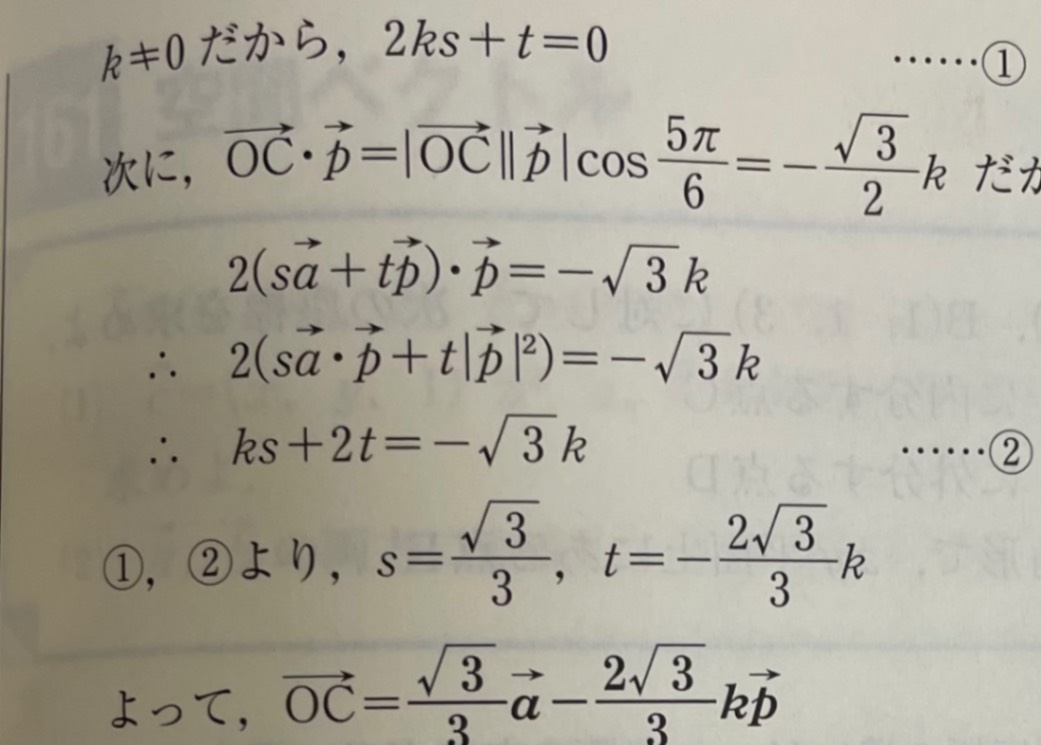 k≠0 だから，2ks+t=0 ……①
次に，$\overrightarrow{OC}\cdot\vec{p}=|\overrightarrow{OC}||\vec{p}|\cos\frac{5\pi}{6}=-\frac{\sqrt{3}}{2}k$ だか
$2(s\vec{a}+t\vec{p})\cdot\vec{p}=-\sqrt{3}k$
∴ $2(s\vec{a}\cdot\vec{p}+t|\vec{p}|^2)=-\sqrt{3}k$
∴ $ks+2t=-\sqrt{3}k$ ……②
①，②より，$s=\frac{\sqrt{3}}{3}$，$t=-\frac{2\sqrt{3}}{3}k$
よって，$\overrightarrow{OC}=\frac{\sqrt{3}}{3}\vec{a}-\frac{2\sqrt{3}}{3}k\vec{p}$